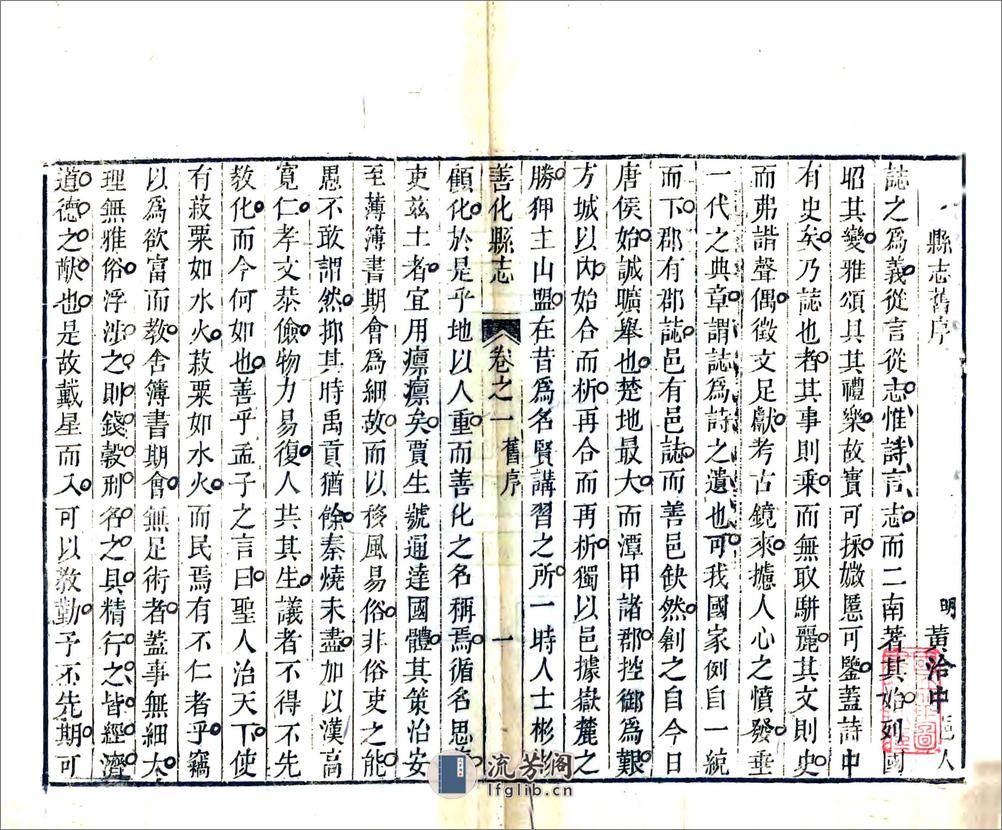 縣志舊序
明黃洽中邑人
誌之爲義從言從志惟詩言志而二南著其始列國
昭其變雅頌具其禮樂故實可採媺慝可鑒蓋詩中
有史矣乃誌也者其事則乘而無取駢麗其文則史
而弗諧聲偶徵文足獻考古鏡來攄人心之憤發垂
一代之典章謂誌爲詩之遺也可我國家例自一統
而下郡有郡誌邑有邑誌而善邑缺然創之自今日
唐侯始誠曠舉也楚地最大而潭甲諸郡控御爲艱
方城以內始合而析再合而再析獨以邑據嶽麓之
勝狎主山盟在昔爲名賢講習之所一時人士彬彬
善化縣志
卷之一
舊序
一
顧化於是乎地以人重而善化之名稱焉循名思義
吏茲土者宜用凜凜矣賈生號通達國體其策治安
至薄簿書期會爲細故而以移風易俗非俗吏之能
思不敢謂然抑其時禹貢猶餘秦燒未盡加以漢高
寬仁孝文恭儉物力易復人共其生議者不得不先
敎化而今何如也善乎孟子之言曰聖人治天下使
有菽粟如水火菽粟如水火而民焉有不仁者乎竊
以爲欲富而敎舍簿書期會無足術者蓋事無細大
理無雅俗浮涉之則錢穀刑名之具精行之皆經濟
道德之猷也是故戴星而入可以敎勤予不先期可
流芳阁
lfglib.cn